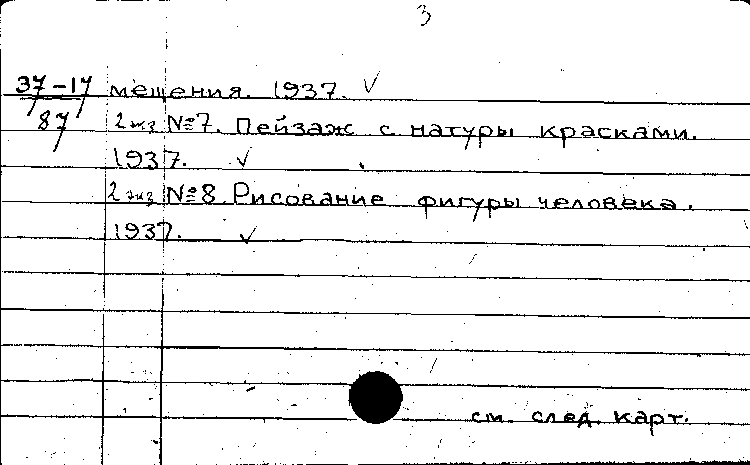 3
37-17 мещения. 1937. ✓
87 2 экз №7. Пейзаж с натуры красками.
1937. ✓
2 экз №8 Рисование фигуры человека.
1937. ✓
см. след. карт.